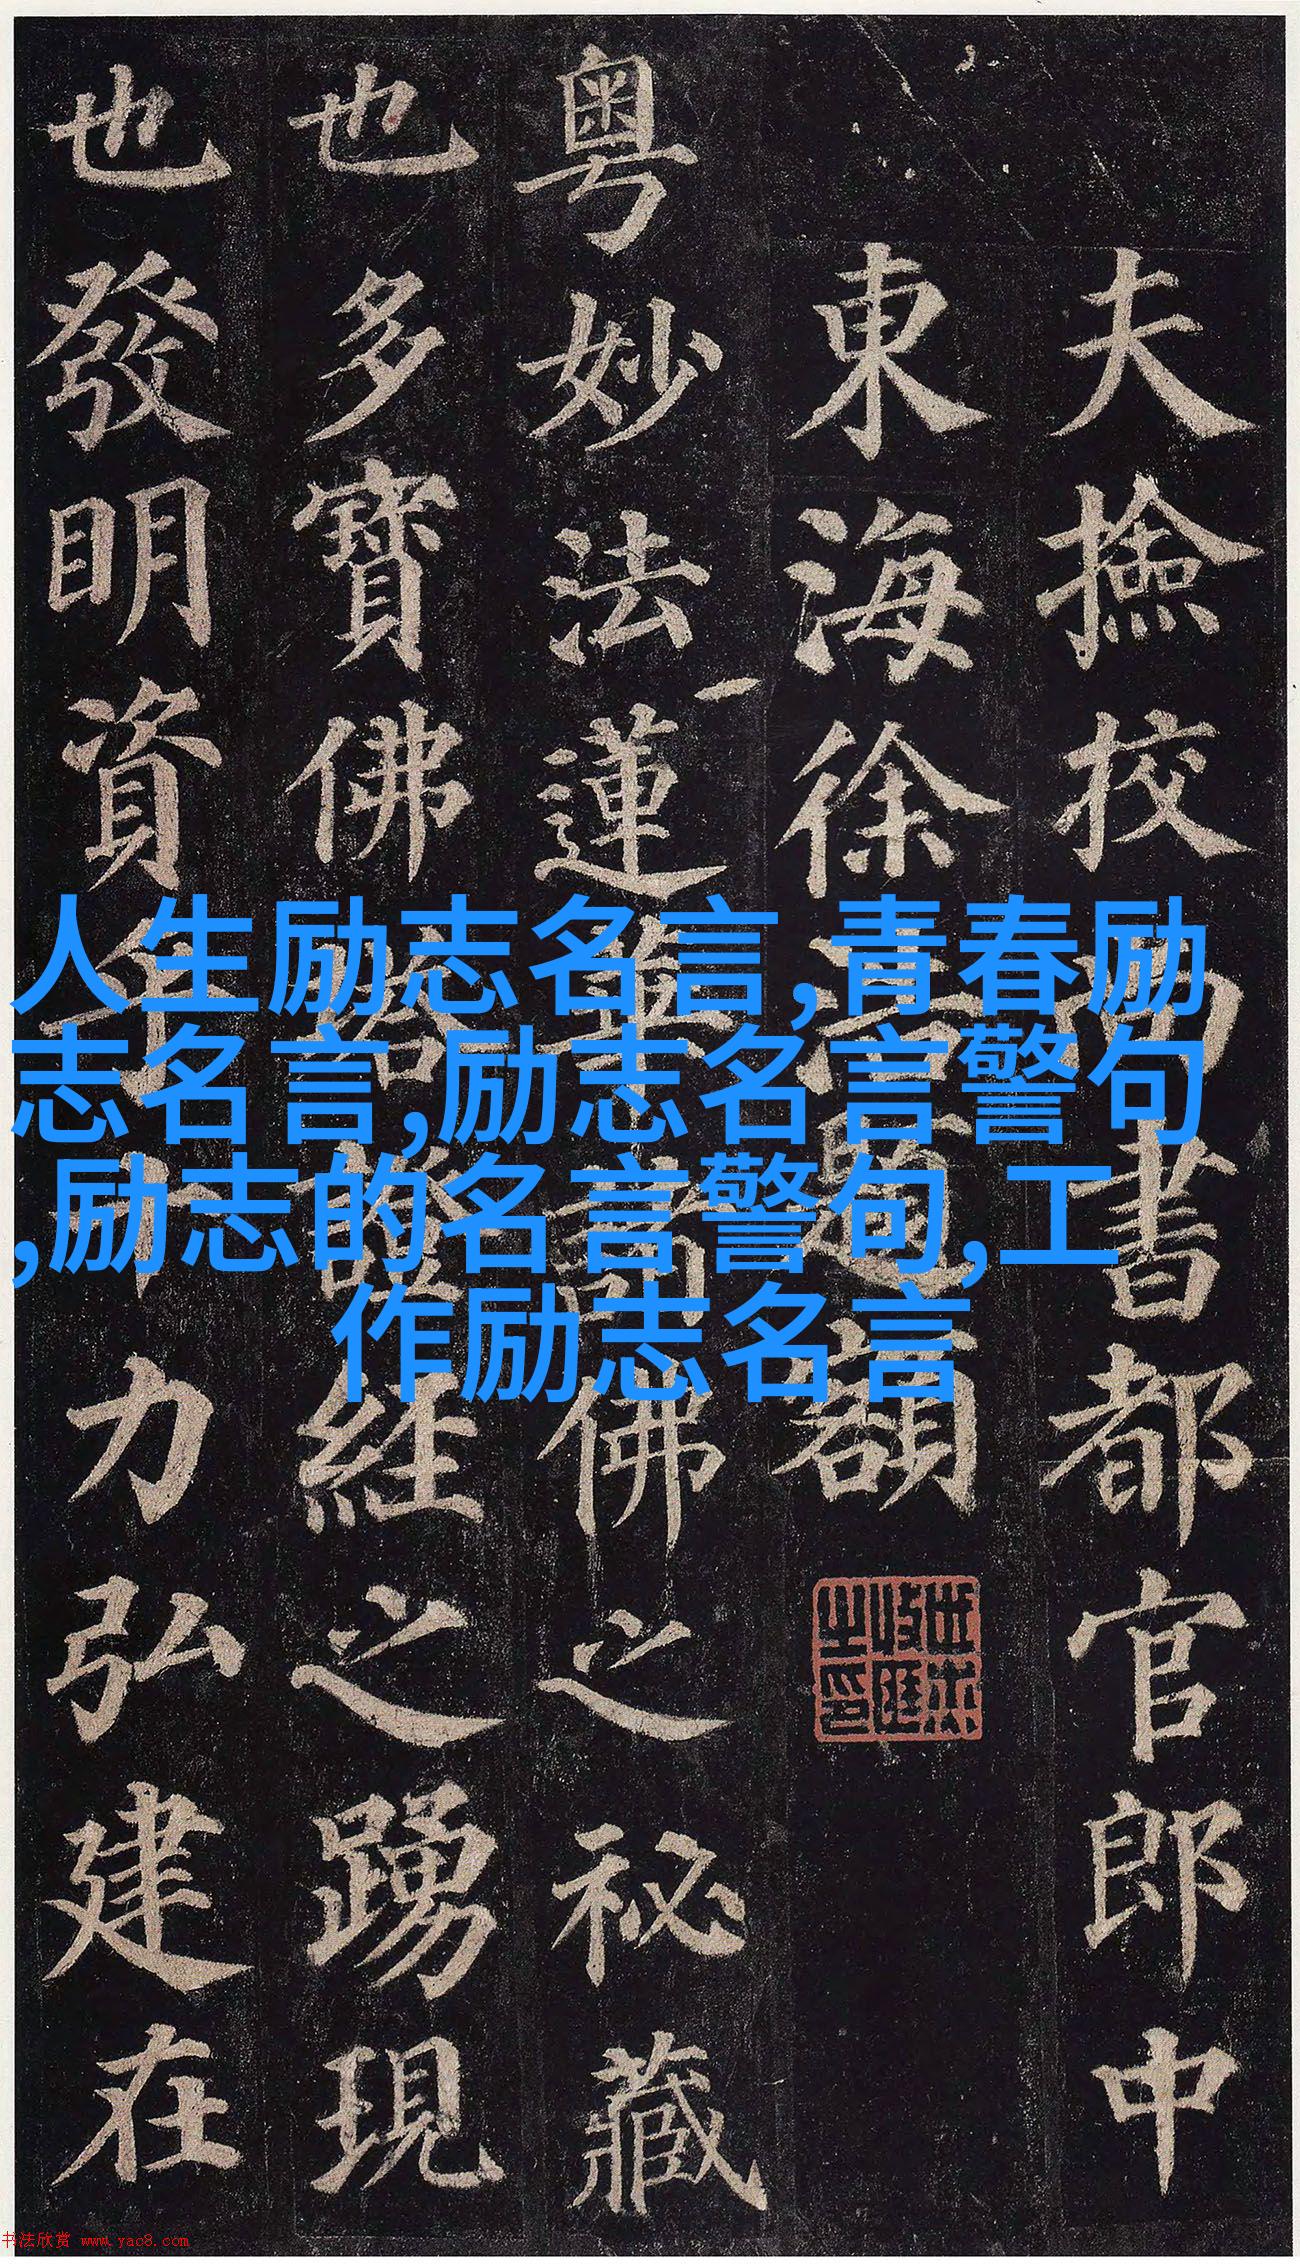 夫撿挍尚書都官郎中
東海徐浩題額
粵妙法蓮華諸佛之祕藏
也多寶佛塔證經之踴現
也發明資乎十力弘建在
人生励志名言,青春励
志名言,励志名言警句
,励志的名言警句,工
作励志名言
书法欣赏 www.yac8.com